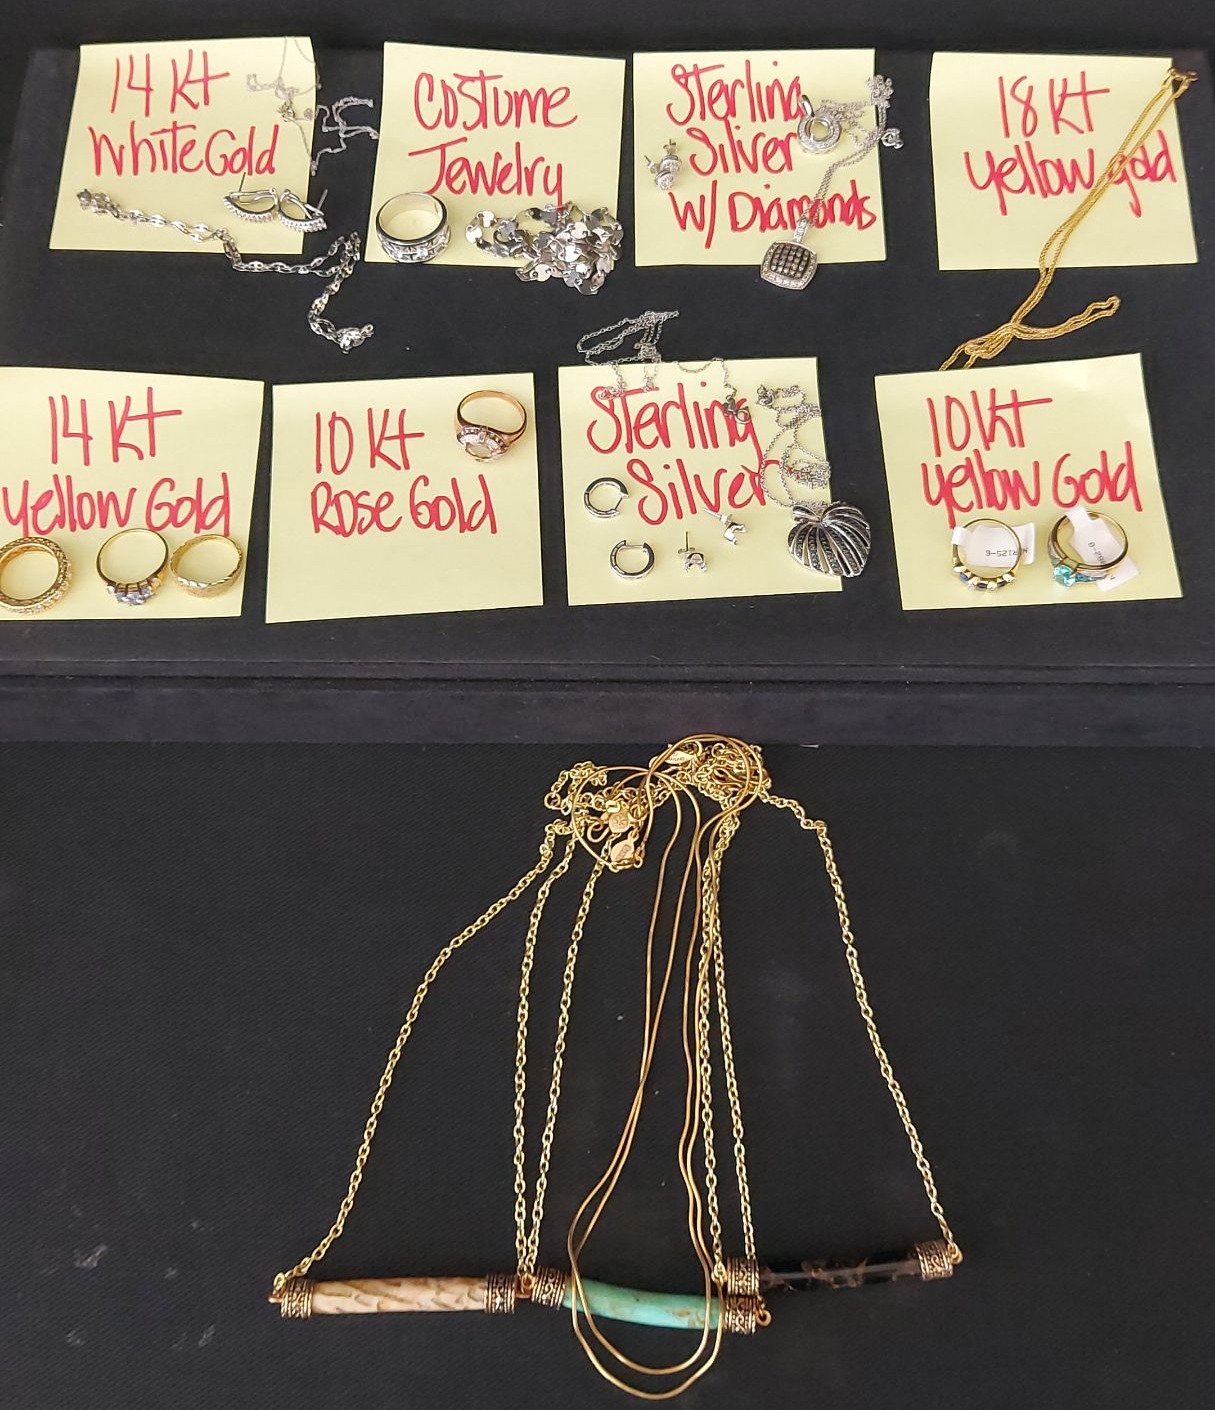 14 Kt
White Gold
Costume
Jewelry
Sterling
Silver
W/ Diamonds
18 Kt
Yellow Gold
14 Kt
Yellow Gold
10 Kt
Rose Gold
Sterling
Silver
10 Kt
Yellow Gold